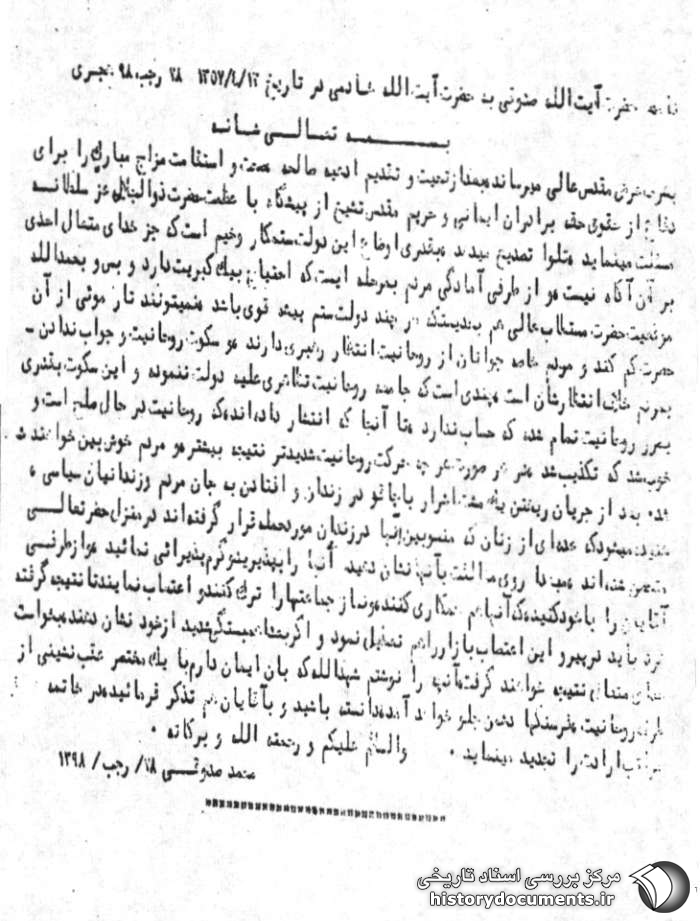 نامه حضرت آیت‌الله صدوقی به حضرت آیت‌الله خادمی در تاریخ ۱۳۵۷/۴/۱۳ ۲۸ رجب ۹۸ هجری
بسمه تعالی شانه
بشرف عرض مقدس عالی میرساند بعد از تحیت و تقدیم ادعیه خالصه صحت و استقامت مزاج مبارک را برای
دفاع از حقوق حقه برادران ایمانی و حریم مقدس تشیع از پیشگاه با عظمت حضرت ذوالجلال عز سلطانه
مسئلت مینماید تصدیع میدهد بقدری اوضاع این دولت ستمکار وخیم است که جز خدای متعال احدی
بر آن آگاه نیست و از طرفی آمادگی مردم بمرحله ایست که احتیاج بیک کبریت دارد و بس و بحمدالله
موقعیت حضرت مستطاب عالی هم بحدیست که هر چند دولت ستم پیشه قوی باشد نمیتوانند تار موئی از آن
حضرت کم کنند و مردم خاصه جوانان از روحانیت انتظار رهبری دارند و سکوت روحانیت و جواب ندادن
بمردم خلاف انتظارشان است چندی است که جامعه روحانیت تظاهری علیه دولت ننموده و این سکوت بقدری
بضرر روحانیت تمام شده که حساب ندارد تا آنجا که انتشار داده‌اند که روحانیت در حال صلح است و
خوب شد که تکذیب شد در صورت هر چه حرکت روحانیت شدیدتر نتیجه بیشتر و مردم خوش بین خواهند
شد بعد از جریان ریختن یک مشت اشرار با چاقو در زندان و افتادن به جان مردم و زندانیان سیاسی
شنیده میشود که عده‌ای از زنان که منسوبین آنها در زندان مورد حمله قرار گرفته‌اند در منزل حضرتعالی
متحصن شده‌اند روی مخالفت بآنها نشان ندهید آنها را بپذیرید و گرم پذیرائی نمائید و از طرفی
آقایان را با خود کنید که آنها هم همکاری کنند و نماز جماعتها را ترک کنند و اعتصاب نمایند تا نتیجه گرفته
شود باید در پیرو این اعتصاب بازار را هم تعطیل نمود و اگر همبستگی شدید از خود نشان دهند بخواست
خدای متعال نتیجه خواهند گرفت آنچه را نوشتم شهدالله که بان ایمان دارم با یک مختصر عقب نشینی از
طرف روحانیت فرسنگها دشمن جلو خواهد آمد دانسته باشید و بآقایان هم تذکر فرمائید در خاتمه
مراتب ارادت را تجدید مینماید . والسلام علیکم و رحمة الله و برکاته .
محمد صدوقی ۲۸/ رجب/ ۱۳۹۸
مرکز بررسی اسناد تاریخی
historydocuments.ir
۱